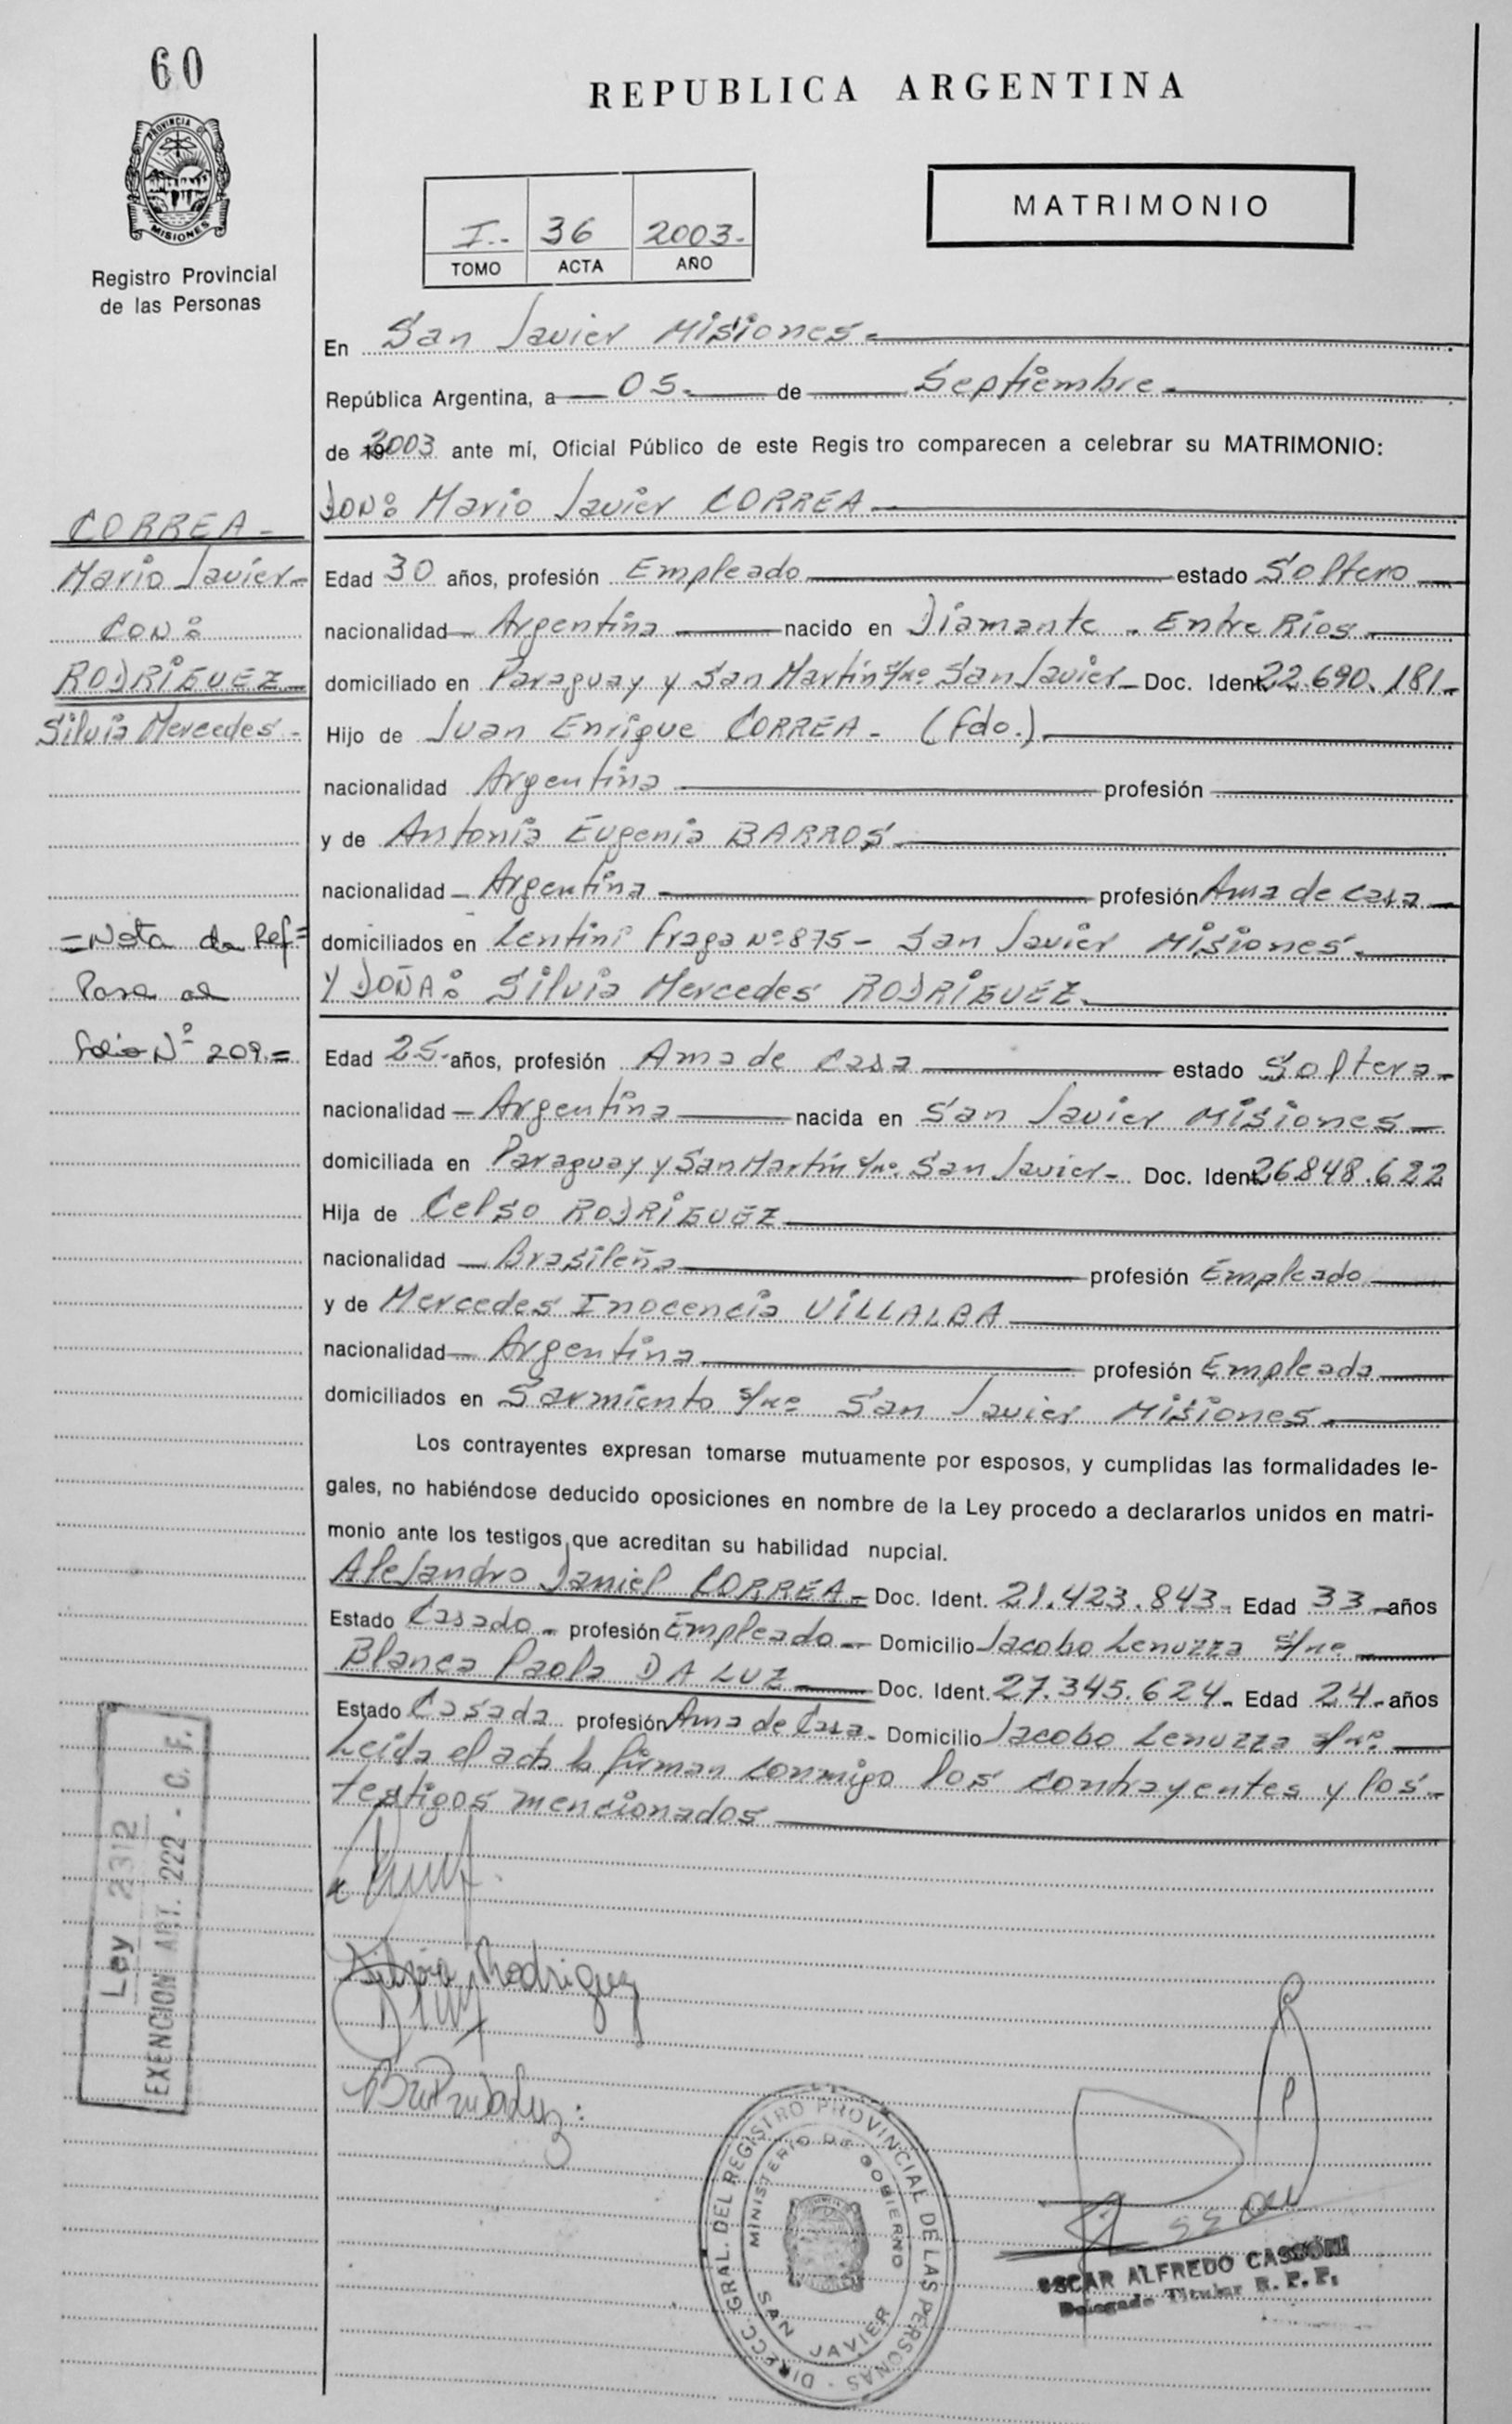 60
PROVINCIA DE
MISIONES
Registro Provincial
de las Personas
REPUBLICA ARGENTINA
I.- 36 2003-
TOMO ACTA AÑO
MATRIMONIO
En San Javier Misiones-
República Argentina, a 05- de Septiembre-
de 2003 ante mí, Oficial Público de este Regis tro comparecen a celebrar su MATRIMONIO:
DON: Mario Javier CORREA
CORREA-
Mario Javier-
CON:
RODRIGUEZ
Silvia Mercedes-
Edad 30 años, profesión Empleado estado Soltero
nacionalidad Argentina nacido en Diamante - Entre Ríos
domiciliado en Paraguay y San Martín s/nº San Javier- Doc. Ident. 22.690.181-
Hijo de Juan Enrique CORREA- (fdo.)
nacionalidad Argentina profesión
y de Antonia Eugenia BARROS-
nacionalidad Argentina profesión Ama de casa
domiciliados en Lentini Fraga Nº 875- San Javier Misiones-
=Nota de Ref=
Pasa al
folio Nº 209=
Y DOÑA: Silvia Mercedes RODRIGUEZ
Edad 25- años, profesión Ama de casa estado Soltera-
nacionalidad Argentina nacida en San Javier Misiones-
domiciliada en Paraguay y San Martín s/nº San Javier- Doc. Ident. 26848.622
Hija de Celso RODRIGUEZ
nacionalidad Brasileña profesión Empleado
y de Mercedes Inocencia VILLALBA
nacionalidad Argentina profesión Empleada
domiciliados en Sarmiento s/nº San Javier Misiones-
Los contrayentes expresan tomarse mutuamente por esposos, y cumplidas las formalidades le-
gales, no habiéndose deducido oposiciones en nombre de la Ley procedo a declararlos unidos en matri-
monio ante los testigos que acreditan su habilidad nupcial.
Alejandro Daniel CORREA- Doc. Ident. 21.423.843- Edad 33 años
Estado Casado- profesión Empleado- Domicilio Jacobo Lenuzza s/nº
Blanca Paola DA LUZ Doc. Ident. 27.345.624- Edad 24- años
Estado Casada profesión Ama de Casa- Domicilio Jacobo Lenuzza s/nº
Leida el acta la firman conmigo los contrayentes y los-
testigos mencionados
Ley 2312
EXENCION ART. 222 - C. F.
Silvia Rodriguez
DIRECC. GRAL. DEL REGISTRO PROVINCIAL DE LAS PERSONAS
MINISTERIO DE GOBIERNO
SAN JAVIER
OSCAR ALFREDO CASSONI
Delegado Titular R. P. P.